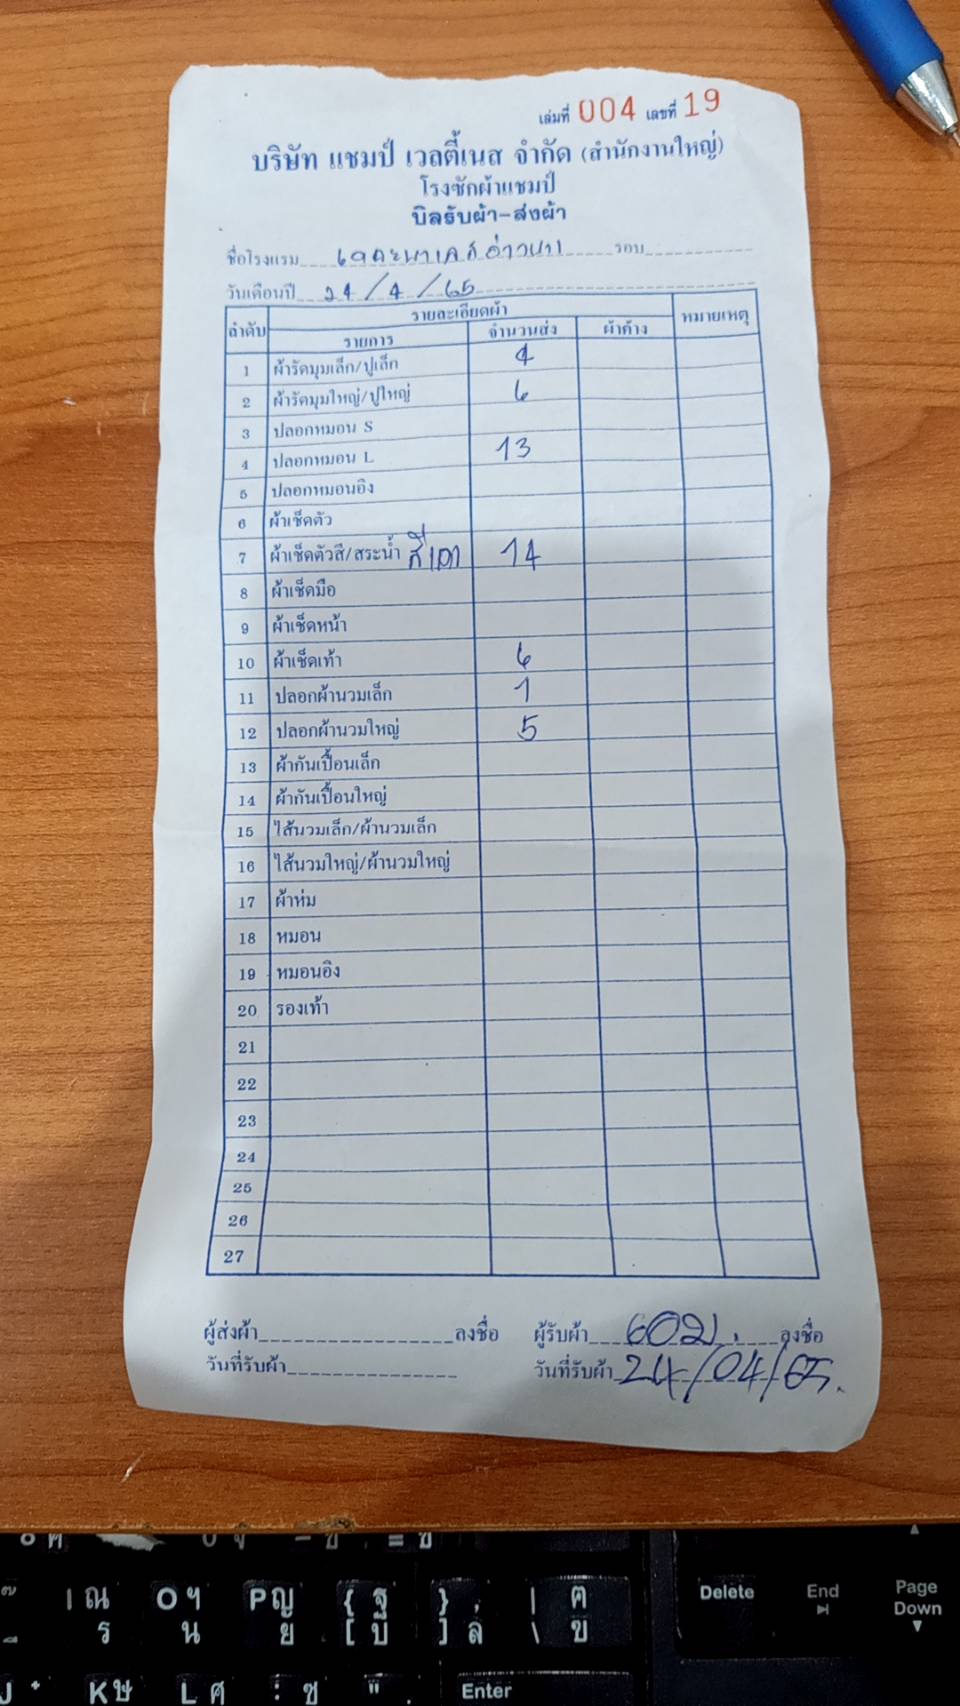 เล่มที่ 004 เลขที่ 19
บริษัท แชมป์ เวลตี้เนส จำกัด (สำนักงานใหญ่)
โรงซักผ้าแชมป์
บิลรับผ้า-ส่งผ้า
ชื่อโรงแรม อ่าวนาง รอบ
วันเดือนปี 24/4/65
ลำดับ รายละเอียดผ้า หมายเหตุ
รายการ จำนวนส่ง ผ้าค้าง
1 ผ้ารัดมุมเล็ก/ปูเล็ก 4
2 ผ้ารัดมุมใหญ่/ปูใหญ่ 6
3 ปลอกหมอน S
4 ปลอกหมอน L 13
5 ปลอกหมอนอิง
6 ผ้าเช็ดตัว
7 ผ้าเช็ดตัวสี/สระน้ำ สีเทา 14
8 ผ้าเช็ดมือ
9 ผ้าเช็ดหน้า
10 ผ้าเช็ดเท้า 6
11 ปลอกผ้านวมเล็ก 1
12 ปลอกผ้านวมใหญ่ 5
13 ผ้ากันเปื้อนเล็ก
14 ผ้ากันเปื้อนใหญ่
15 ไส้นวมเล็ก/ผ้านวมเล็ก
16 ไส้นวมใหญ่/ผ้านวมใหญ่
17 ผ้าห่ม
18 หมอน
19 หมอนอิง
20 รองเท้า
21
22
23
24
25
26
27
ผู้ส่งผ้า ลงชื่อ ผู้รับผ้า ลงชื่อ
วันที่รับผ้า วันที่รับผ้า 24/04/65.
I ณ ร O ฯ น P ญ ย { [ ฐ บ } ] , ล | \ ฅ ฃ Delete End Page Down
K ษ L ศ : ซ " . Enter